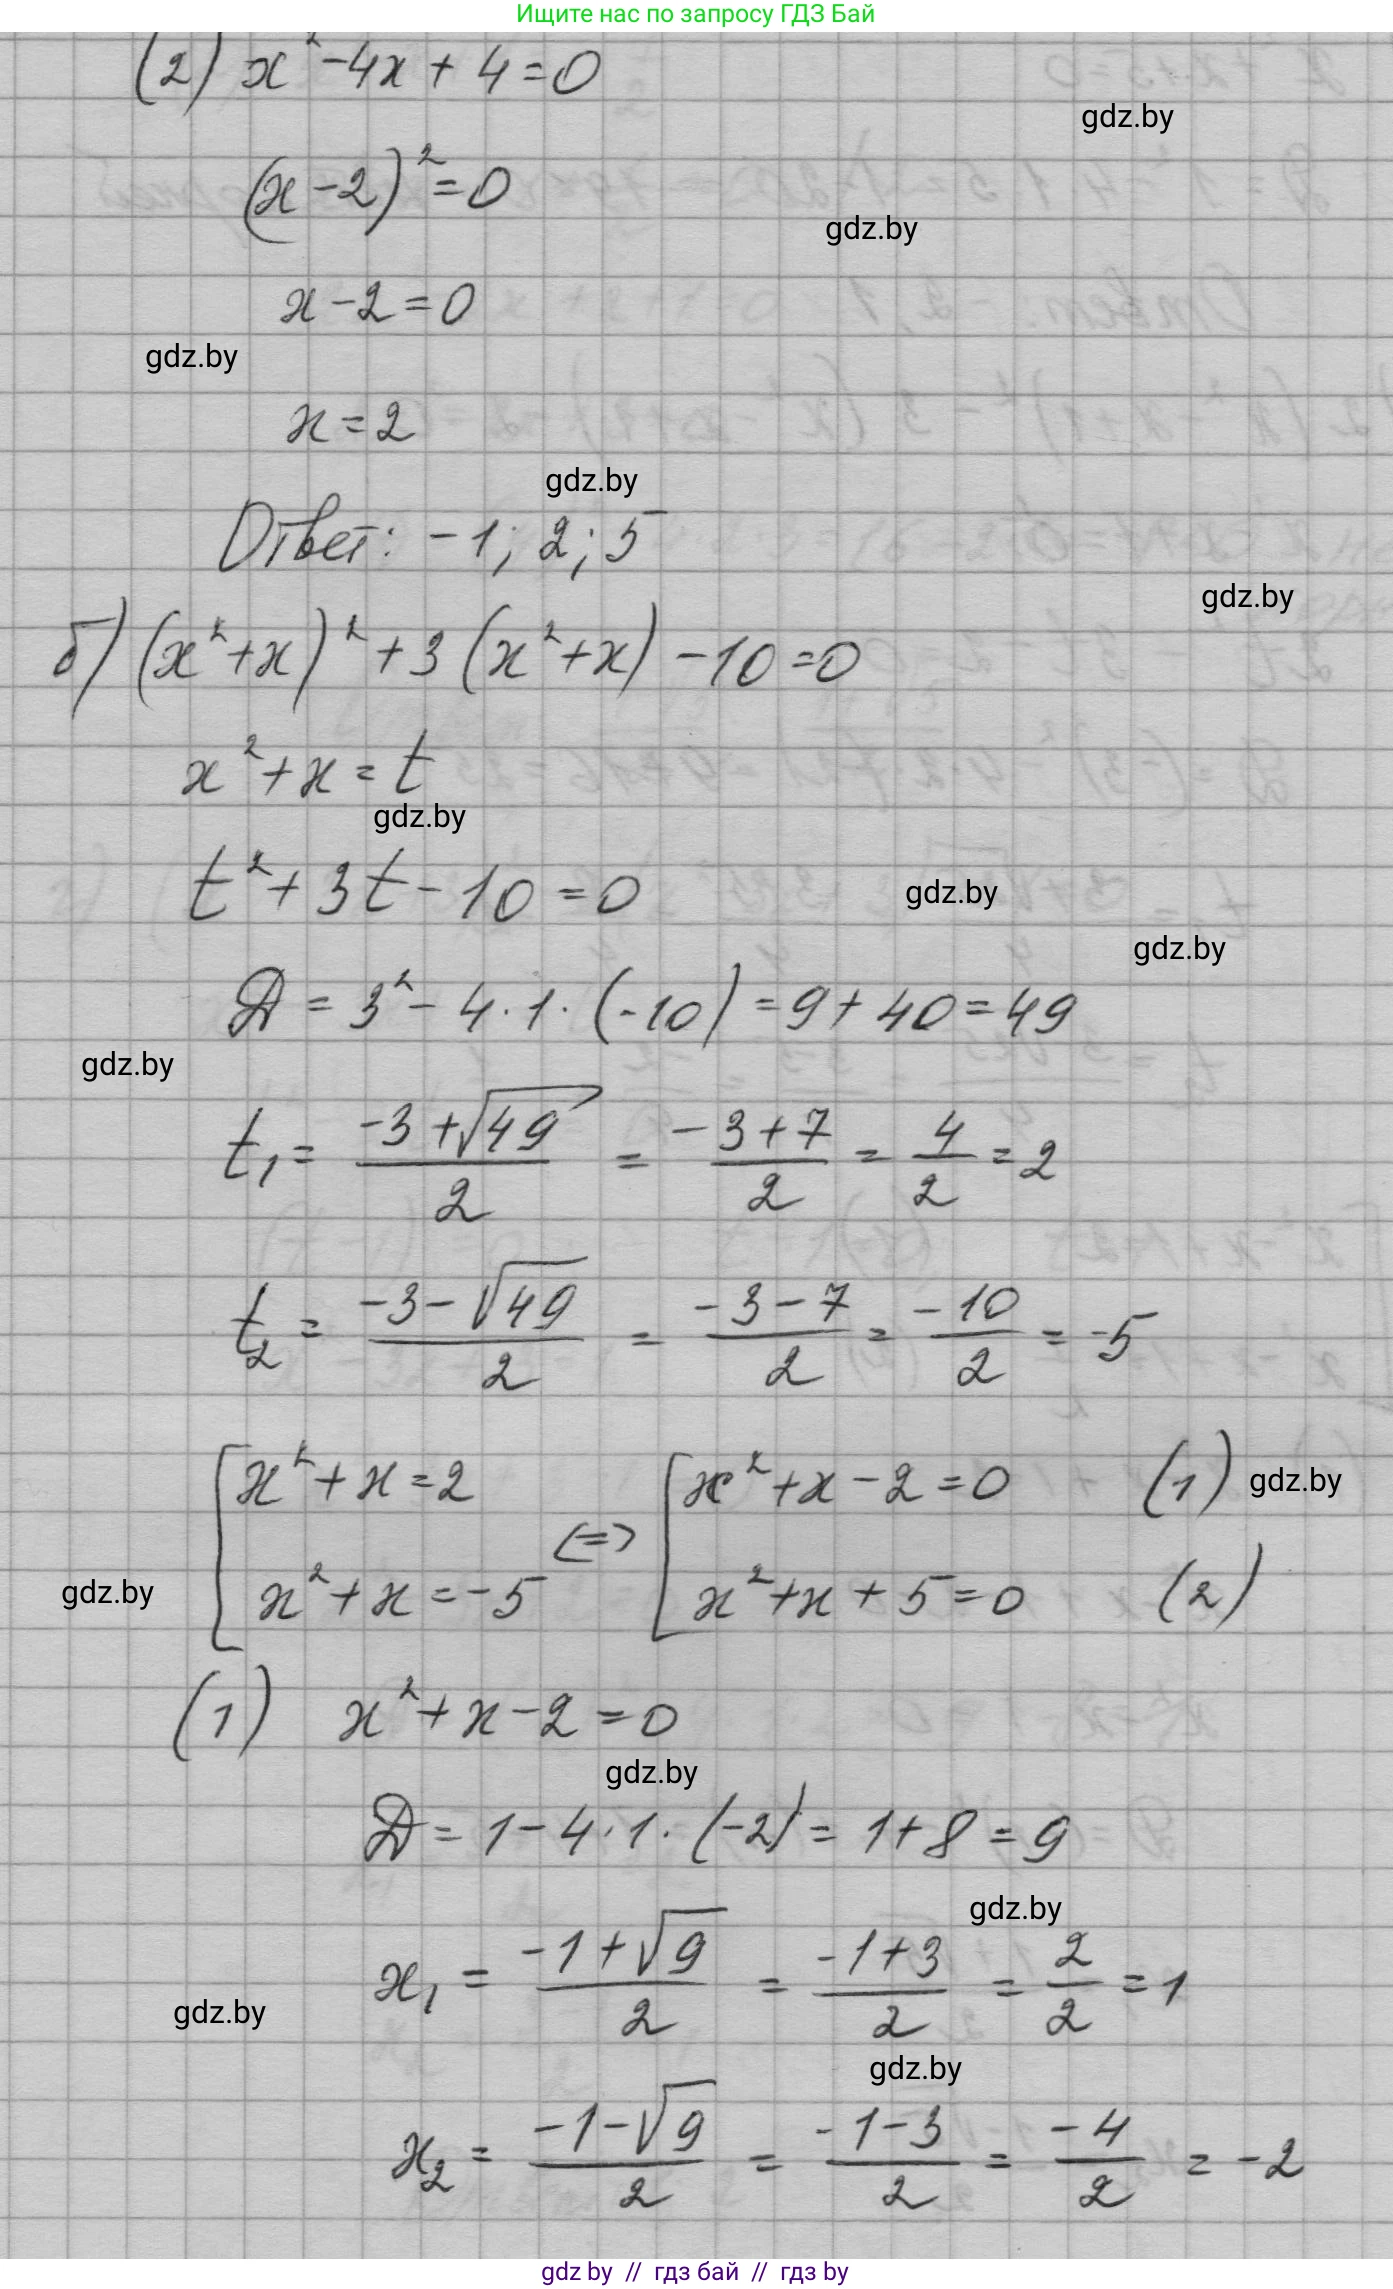 Ищите нас по запросу ГДЗ Бай
(2) x² - 4x + 4 = 0
gdz.by
(x - 2)² = 0
gdz.by
x - 2 = 0
gdz.by
x = 2
gdz.by
Ответ: -1; 2; 5
gdz.by
б) (x² + x)² + 3 (x² + x) - 10 = 0
x² + x = t
gdz.by
t² + 3t - 10 = 0
gdz.by
gdz.by
D = 3² - 4 · 1 · (-10) = 9 + 40 = 49
gdz.by
t₁ = (-3 + √49)/2 = (-3 + 7)/2 = 4/2 = 2
t₂ = (-3 - √49)/2 = (-3 - 7)/2 = -10/2 = -5
[x² + x = 2 <=> [x² + x - 2 = 0 (1) gdz.by
gdz.by [x² + x = -5 [x² + x + 5 = 0 (2)
(1) x² + x - 2 = 0
gdz.by
D = 1 - 4 · 1 · (-2) = 1 + 8 = 9
gdz.by
x₁ = (-1 + √9)/2 = (-1 + 3)/2 = 2/2 = 1
gdz.by
gdz.by
x₂ = (-1 - √9)/2 = (-1 - 3)/2 = -4/2 = -2
gdz by // гдз бай // гдз by